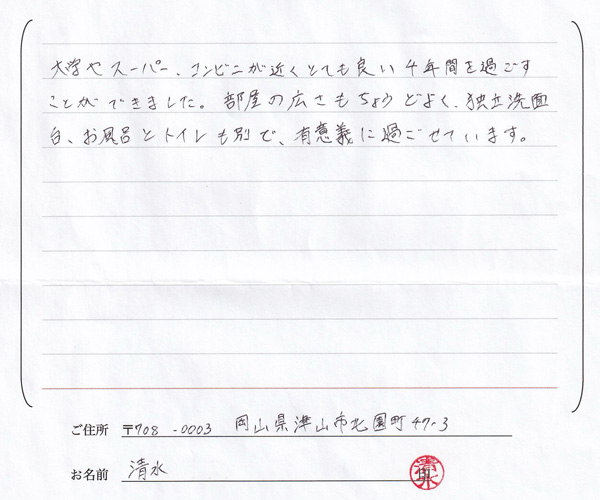 大学やスーパー、コンビニが近くとても良い4年間を過ごす
ことができました。部屋の広さもちょうどよく、独立洗面
台、お風呂とトイレも別で、有意義に過ごせています。
ご住所 〒708-0003 岡山県津山市北園町47-3
お名前 清水